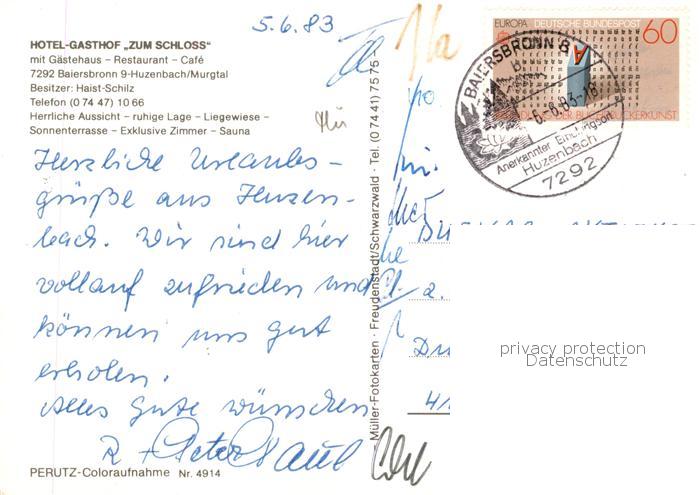 5.6.83
HOTEL-GASTHOF „ZUM SCHLOSS"
mit Gästehaus – Restaurant – Café
7292 Baiersbronn 9-Huzenbach/Murgtal
Besitzer: Haist-Schilz
Telefon (0 74 47) 10 66
Herrliche Aussicht – ruhige Lage – Liegewiese –
Sonnenterrasse – Exklusive Zimmer – Sauna
Herzliche Urlaubs-
grüße aus Huzen-
bach. Wir sind hier
vollauf zufrieden und
können uns gut
erholen.
Alles gute wünschen
PERUTZ-Coloraufnahme Nr. 4914
Müller-Fotokarten · Freudenstadt/Schwarzwald · Tel. (0 74 41) 75 75
EUROPA DEUTSCHE BUNDESPOST 60
A
BAIERSBRONN
-6.-6.83-18
Anerkannter Erholungsort
Huzenbach
7292
2.
privacy protection
Datenschutz